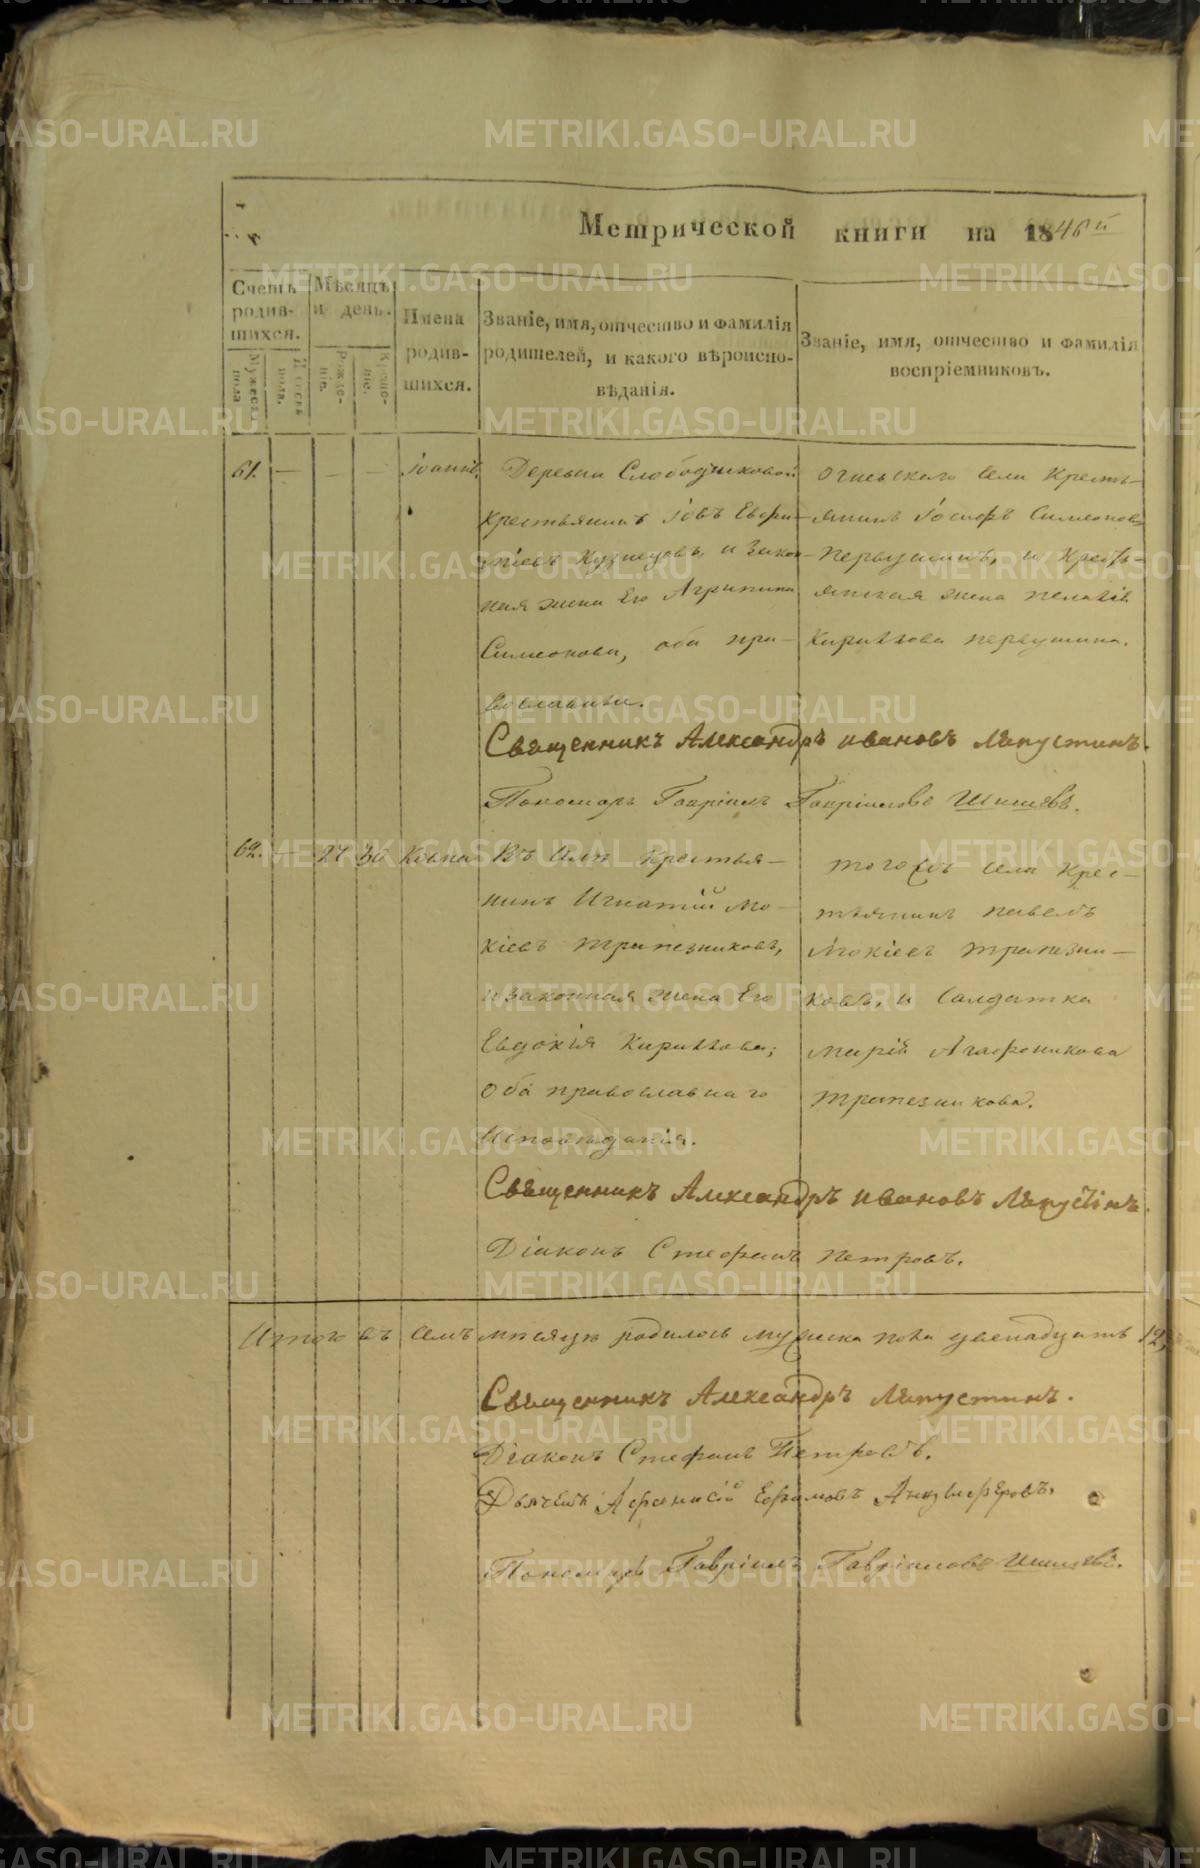 Метрической книги на 1846й
Счетъ родив- шихся.
Мѣсяцъ и день.
Имена родив- шихся.
Званіе, имя, отчество и фамилія родителей, и какого вѣроиспо- вѣданія.
Званіе, имя, отчество и фамилія воспріемниковъ.
Мужеска пола
Женска пола.
Рожде- ніе.
Креще- ніе.
61. — — — Іоаннъ,
Деревни Слободчиковой
крестьянинъ Іовъ
Кузнецовъ, и закон-
ная жена Его Агрипина
Симеонова, оба пра-
вославные.
села Кресть-
янинъ Іосифъ Симеоновъ
Первушинъ, и Кресть-
янская жена Пелагія
Кириллова Первушина.
Священникъ Александръ Ивановъ Лапустинъ.
Пономарь Гавріилъ Гавріиловъ Шишевъ.
62. — 27 30 Козма
Въ Селѣ Крестья-
нинъ Игнатій Мо-
кіевъ Трапезниковъ,
и законная жена Его
Евдокія Кириллова;
Оба православнаго
Исповѣданія.
Тогожъ села Крес-
тьянинъ Павелъ
Мокіевъ Трапезни-
ковъ, и Солдатка
Марія Агафоникова
Трапезникова.
Священникъ Александръ Ивановъ Лапустінъ.
Діаконъ Стефанъ Петровъ.
Итого въ семъ мѣсяцѣ родилось мужеска пола двенадцать 12,
Священникъ Александръ Лапустинъ.
Діаконъ Стефанъ Петровъ.
Дьячекъ Афанасій Ефимовъ
Пономарь Гавріилъ Гавріиловъ Шишевъ.
METRIKI.GASO-URAL.RU